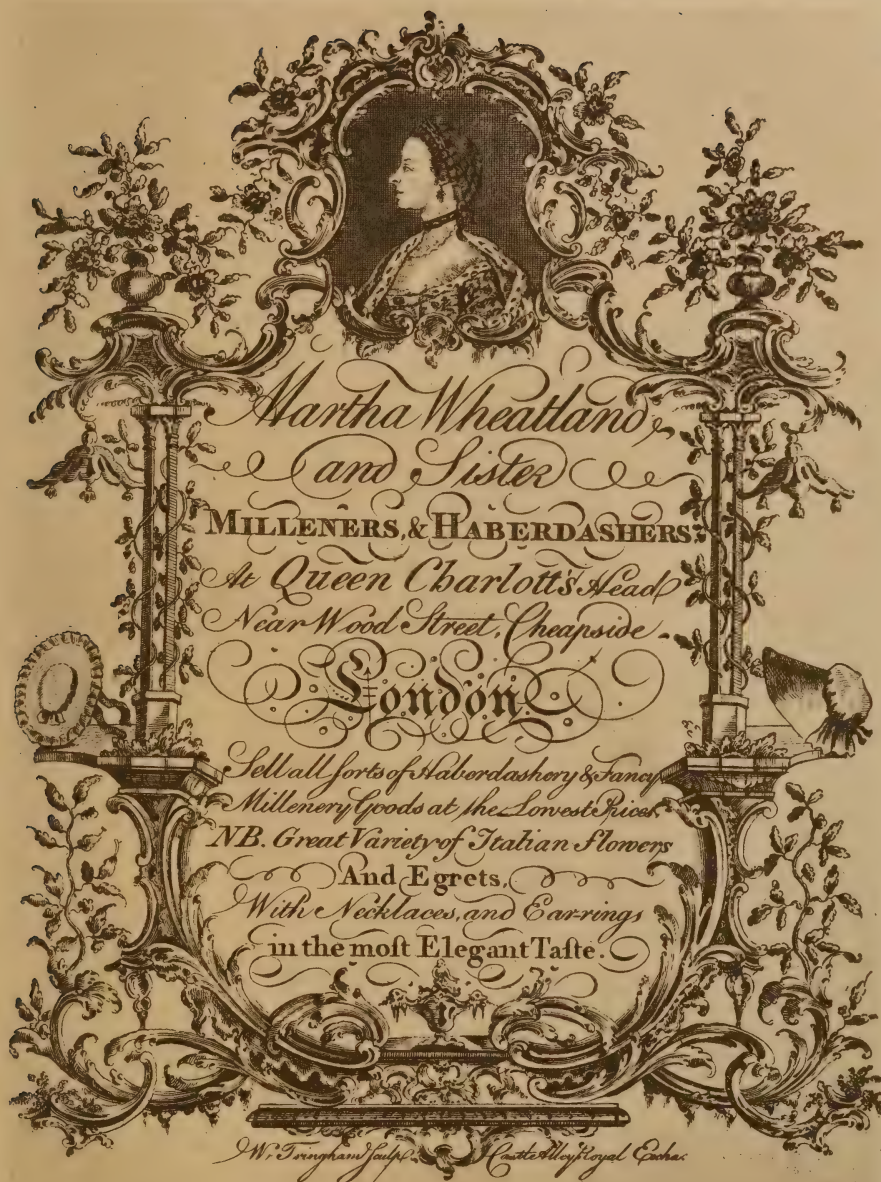 Martha Wheatland,
and Sister
MILLENERS, & HABERDASHERS
At Queen Charlott's Head
Near Wood Street, Cheapside
London
Sell all ſorts of Haberdashery & Fancy
Millenery Goods at the Lowest Prices
NB. Great Variety of Italian flowers
And Egrets,
With Necklaces, and Ear-rings
in the moſt Elegant Taſte.
W. Tringham Sculp. Castle Alley Royal Excha.